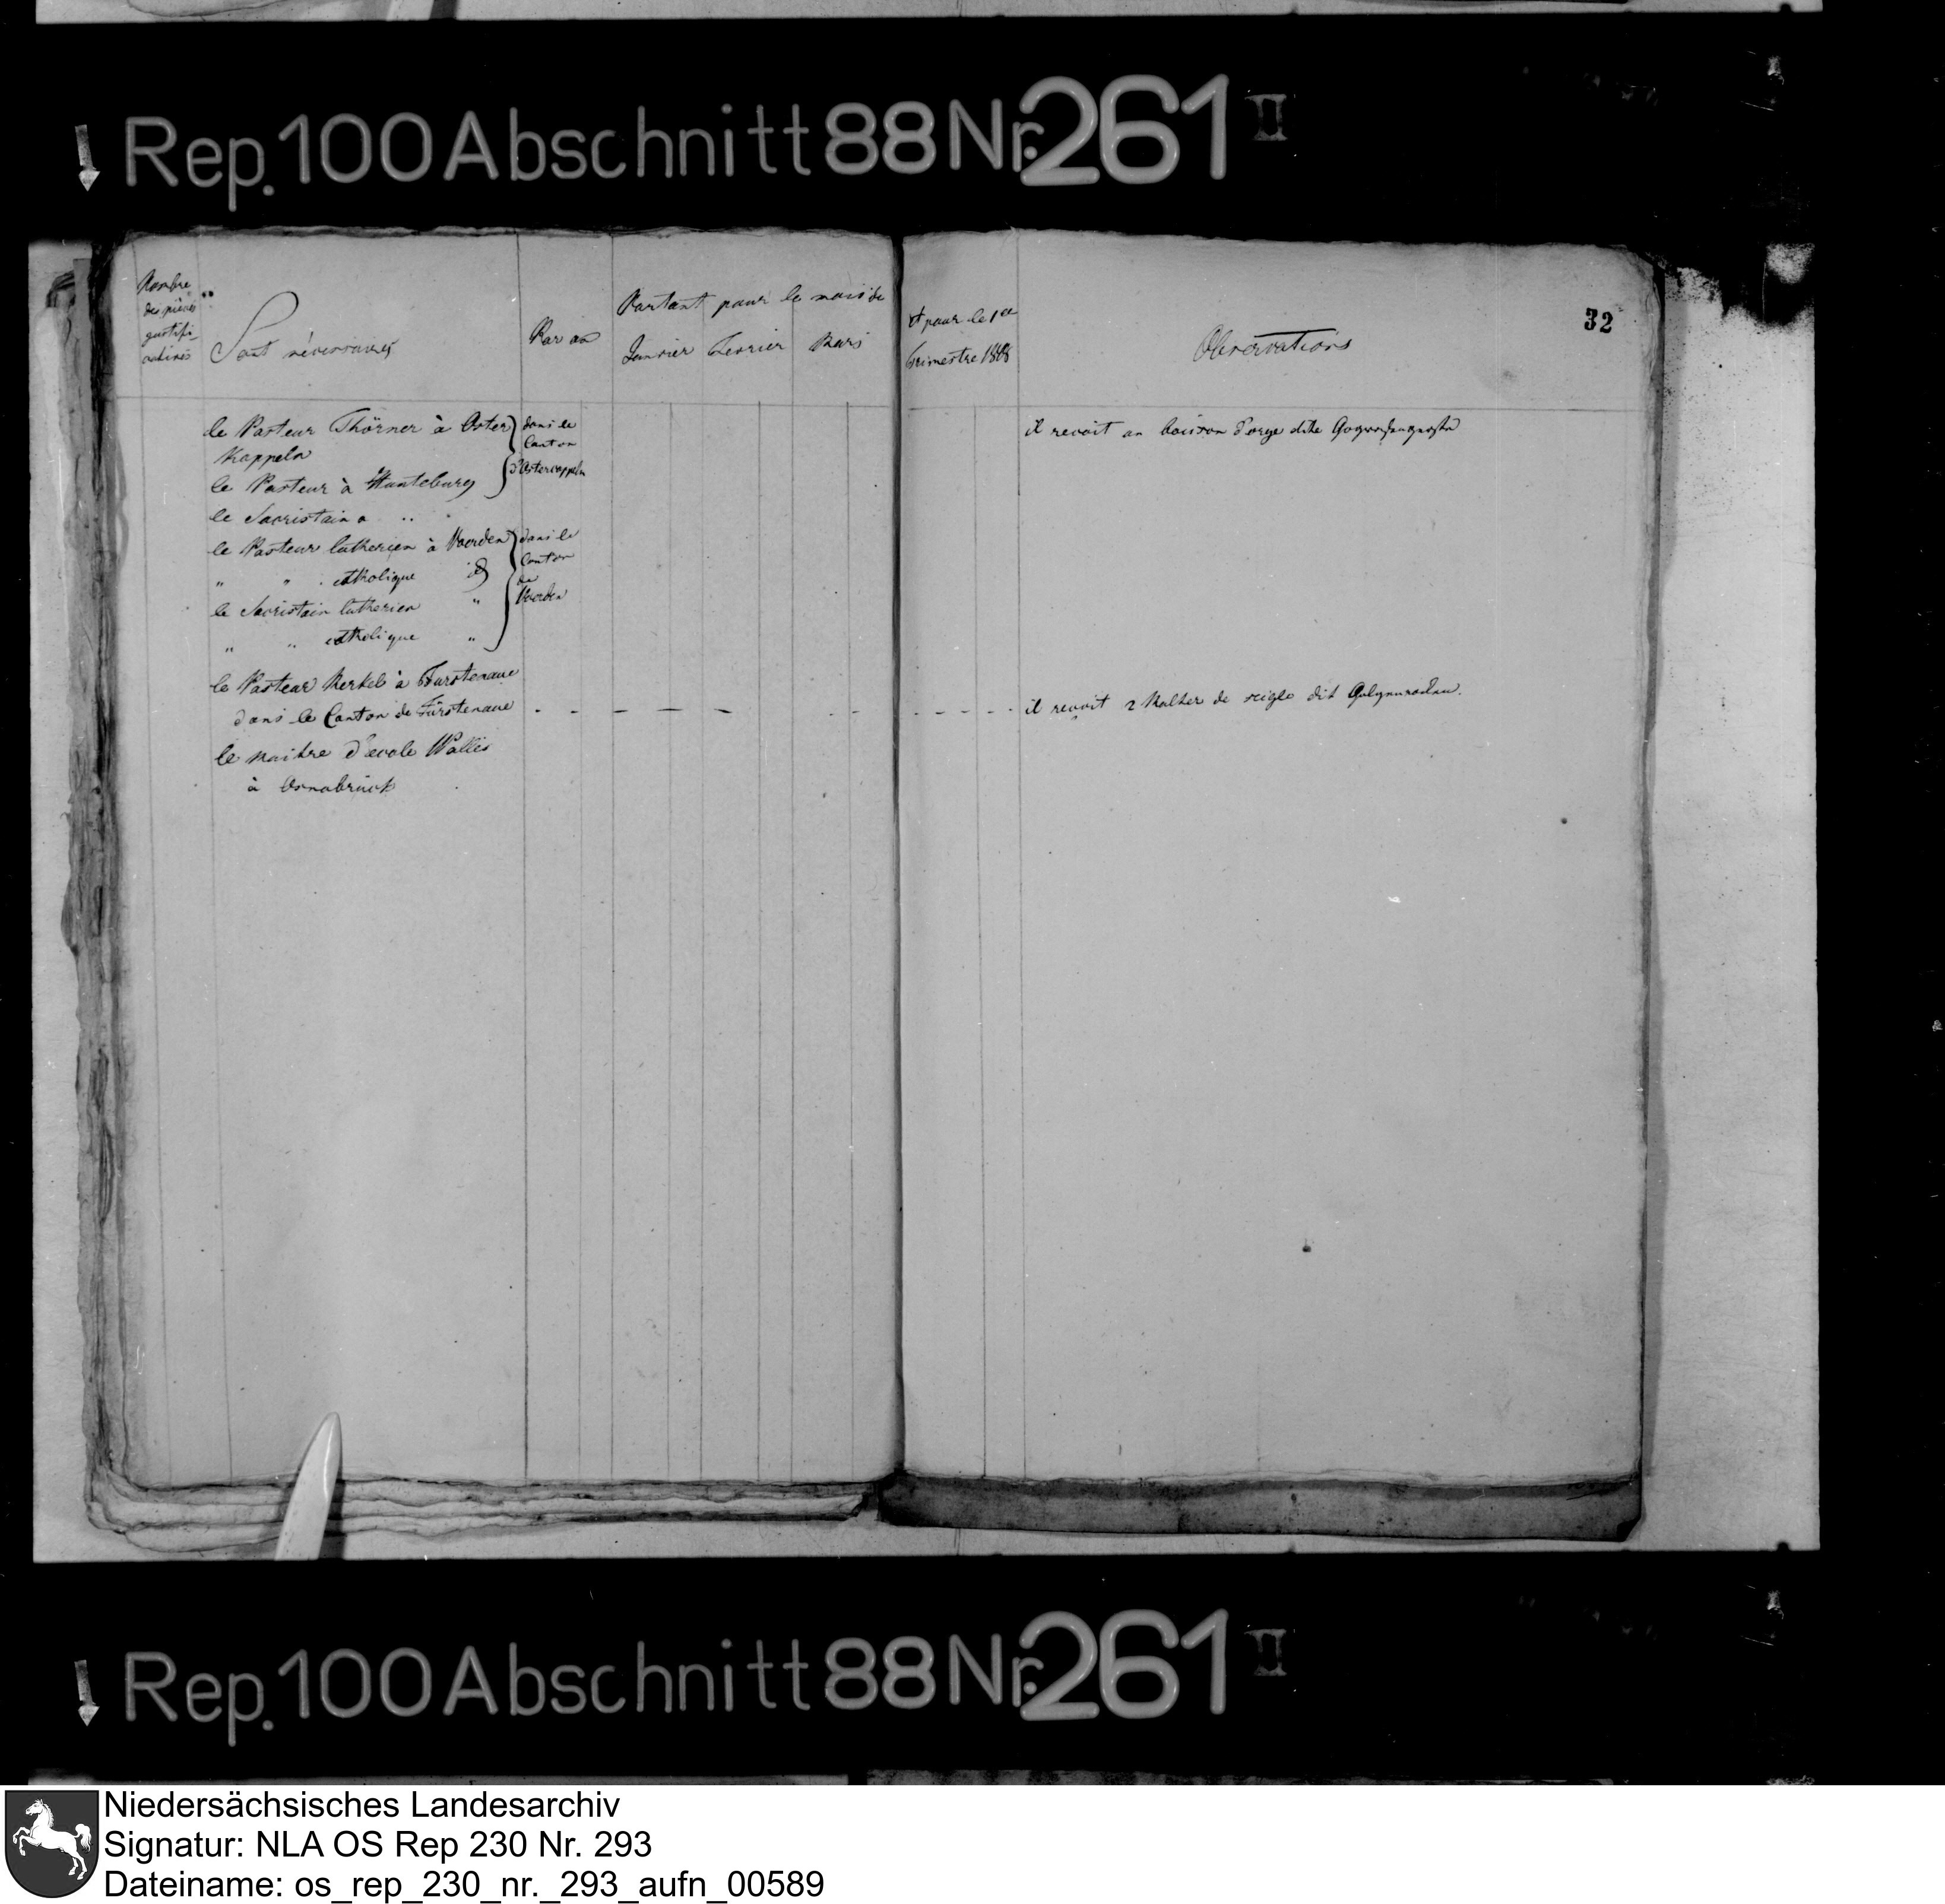 Rep. 100 Abschnitt 88 Nr. 261 II
32
Nombre
des pièces
justifi-
catives
Sont nécessaires
Par an
Partant pour le mois de
Janvier Fevrier Mars
et pour le 1er
trimestre 1808
Observations
le Pasteur Thörner à Oster
Kappeln
le Pasteur à Hunteburg
dans le
Canton
d'Ostercappeln
il reçoit un boisson d'orge dite
le Sacristain a " "
le Pasteur lutherien à Voerden
" " catholique id
le Sacristain lutherien "
" " catholique "
dans le
Canton
de
Voerden
le Pasteur Berkel à Furstenaue
dans le Canton de Fürstenaue
il reçoit 2 Malter de seigle dit
le maitre d'ecole Wallis
à Osnabrück
Rep. 100 Abschnitt 88 Nr. 261 II
Niedersächsisches Landesarchiv
Signatur: NLA OS Rep 230 Nr. 293
Dateiname: os_rep_230_nr._293_aufn_00589